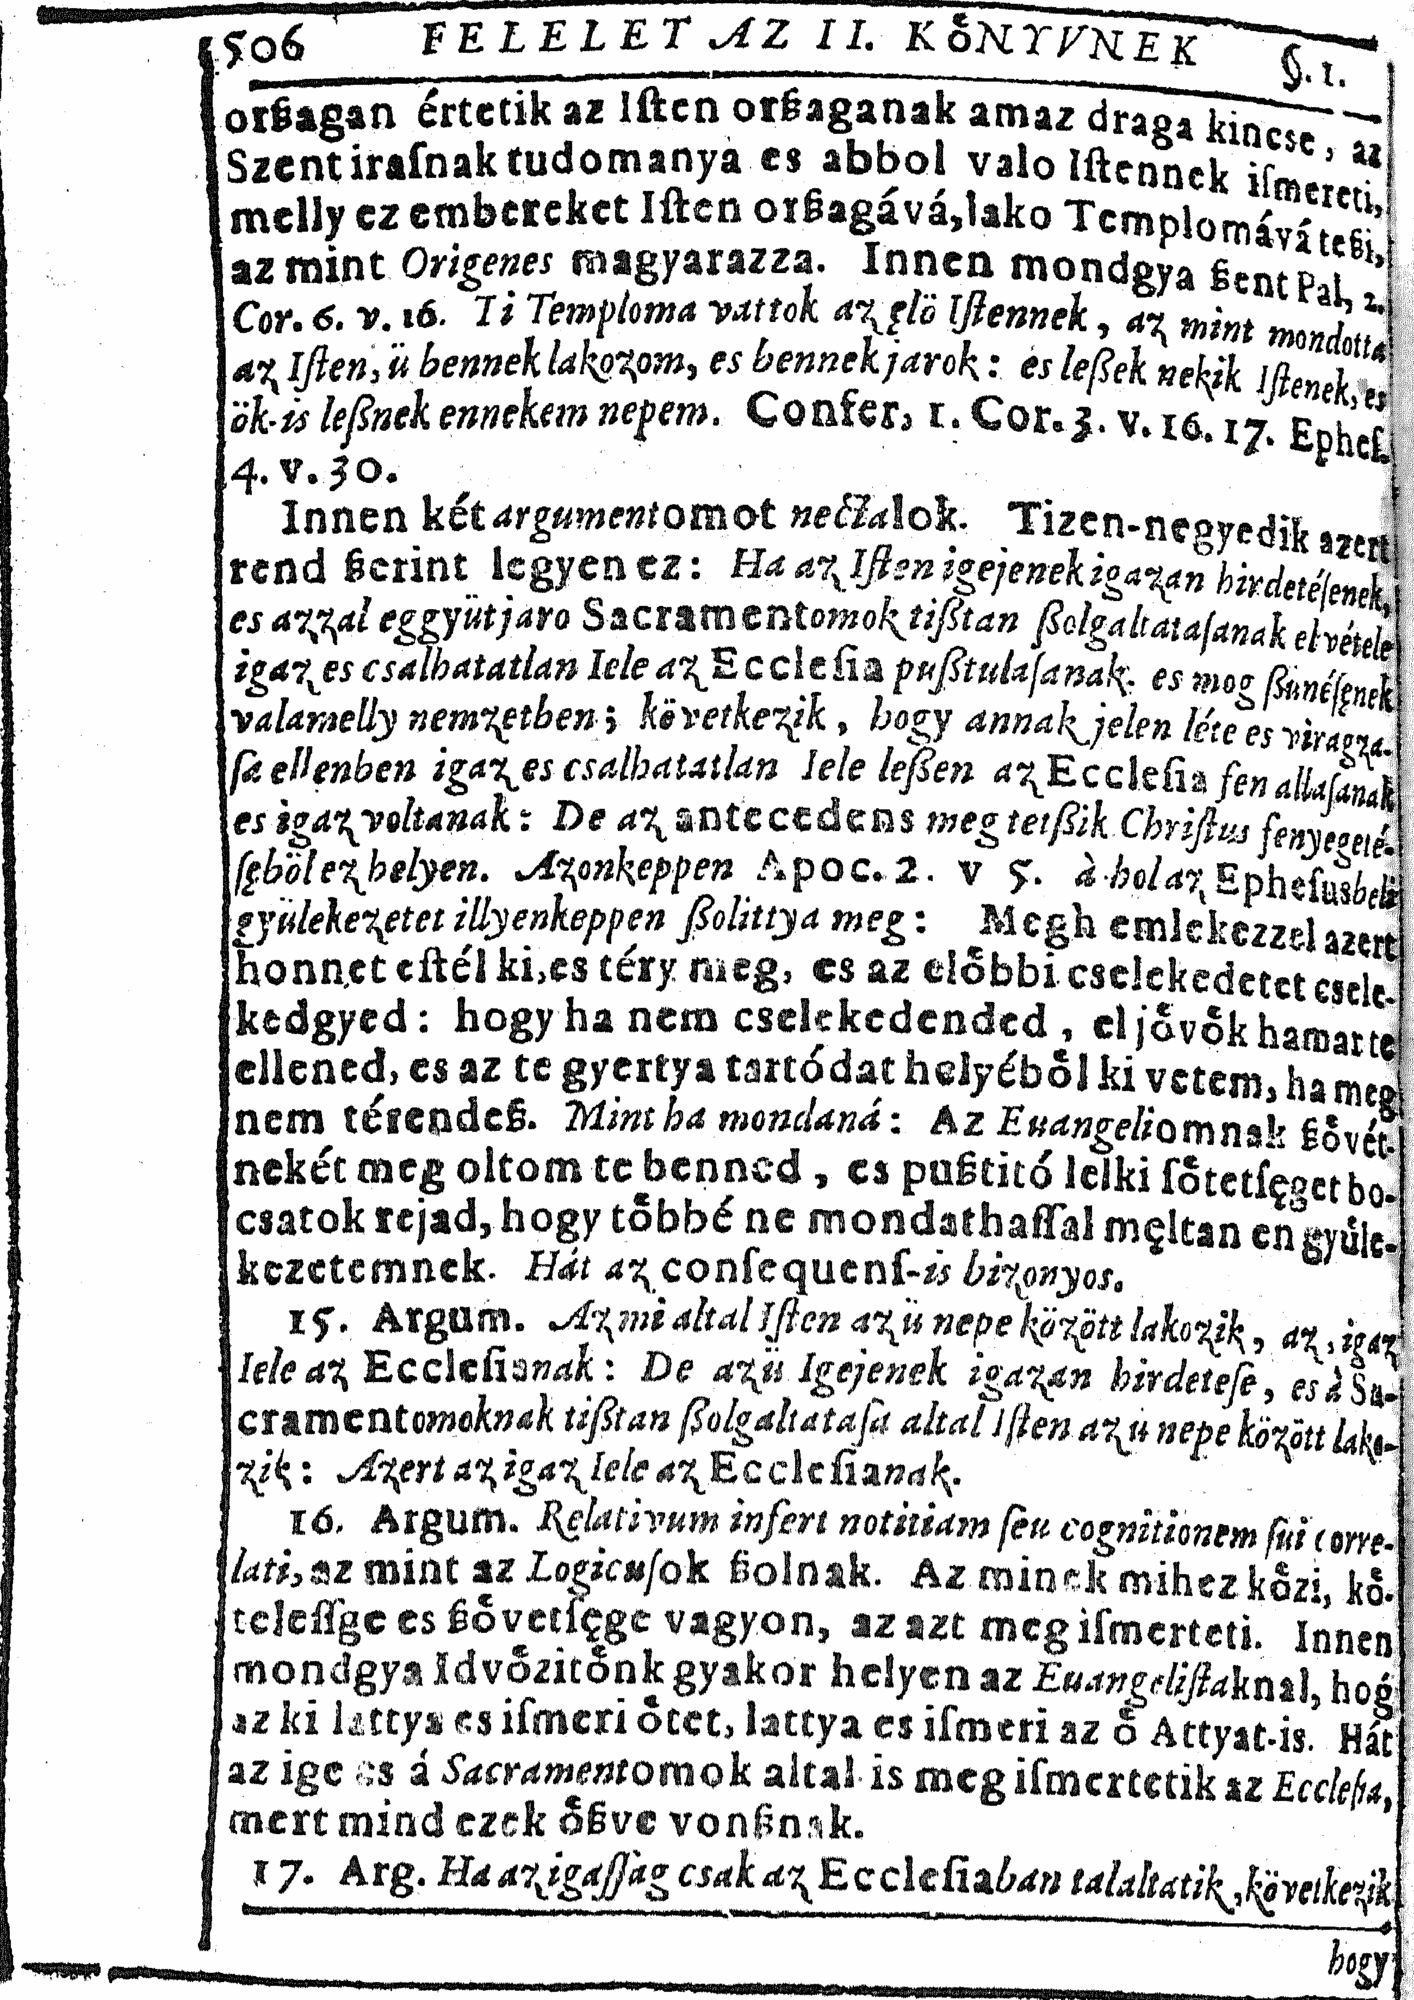 506 FELELET AZ II. KoͤNYVNEK §. 1.
orßagan értetik az Iſten orßaganak amaz draga kincse, az
Szent iraſnak tudomanya es abbol valo Iſtennek iſmereti,
melly ez embereket Iſten orßagává, lako Templomává teßi,
az mint Origenes magyarazza. Innen mondgya ßent Pal, 2.
Cor. 6. v. 16. Ti Temploma vattok az ęlö Iſtennek, az mint mondotta
az Iſten, ü bennek lakozom, es bennek jarok: es leßek nekik Iſtenek, es
ök-is leßnek ennekem nepem. Confer, 1. Cor. 3. v. 16. 17. Epheſ.
4. v. 30.
Innen két argumentomot nečżalok. Tizen-negyedik azert
rend ßerint legyen ez: Ha az Iſten igejenek igazan hirdetéſenek,
es azzal eggyüt jaro Sacramentomok tißtan ßolgaltataſanak el vétele
igaz es csalhatatlan Iele az Eccleſia pußtulaſanak. es mog ßünéſęnek
valamelly nemzetben; következik, hogy annak jelen léte es viragza-
ſa ellenben igaz es csalhatatlan Iele leßen az Eccleſia fen allaſanak
es igaz voltanak: De az antecedens meg tetßik Chriſtus fenyegeté-
ſęböl ez helyen. Azonkeppen Apoc. 2. v 5. à hol az Epheſusbeli
gyülekezetet illyenkeppen ßolittya meg: Megh emlekezzel azert
honnet eſtél ki, es téry meg, es az eloͤbbi cselekedetet csele-
kedgyed: hogy ha nem cselekedended, el joͤvoͤk hamar te
ellened, es az te gyertya tartódat helyéboͤl ki vetem, ha meg
nem térendeß. Mint ha mondaná: Az Euangeliomnak ßoͤvét-
nekét meg oltom te benned, es pußtitó lelki ſoͤtetſęget bo-
csatok rejad, hogy toͤbbé ne mondathaſſal męltan en gyuͤle-
kezetemnek. Hát az conſequenſ-is bizonyos.
15. Argum. Az mi altal Iſten az ü nepe között lakozik, az, igaz
Iele az Eccleſianak: De az ü Igejenek igazan hirdeteſe, es à Sa-
cramentomoknak tißtan ßolgaltataſa altal Iſten az ü nepe között lako-
zik: Azert az igaz Iele az Eccleſianak.
16. Argum. Relativum infert notitiam ſeu cognitionem ſui corre-
lati, az mint az Logicuſok ßolnak. Az minek mihez koͤzi, koͤ-
teleſſge es ßoͤvetſęge vagyon, az azt meg iſmerteti. Innen
mondgya Idvoͤzitoͤnk gyakor helyen az Euangeliſtaknal, hog
az ki lattya es iſmeri oͤtet, lattya es iſmeri az oͤ Attyat-is. Hát
az ige es á Sacramentomok altal is meg iſmertetik az Eccleſia,
mert mind ezek oͤßve vonßnak.
17. Arg. Ha az igaſſàg csak az Eccleſiaban talaltatik, következik
hogy